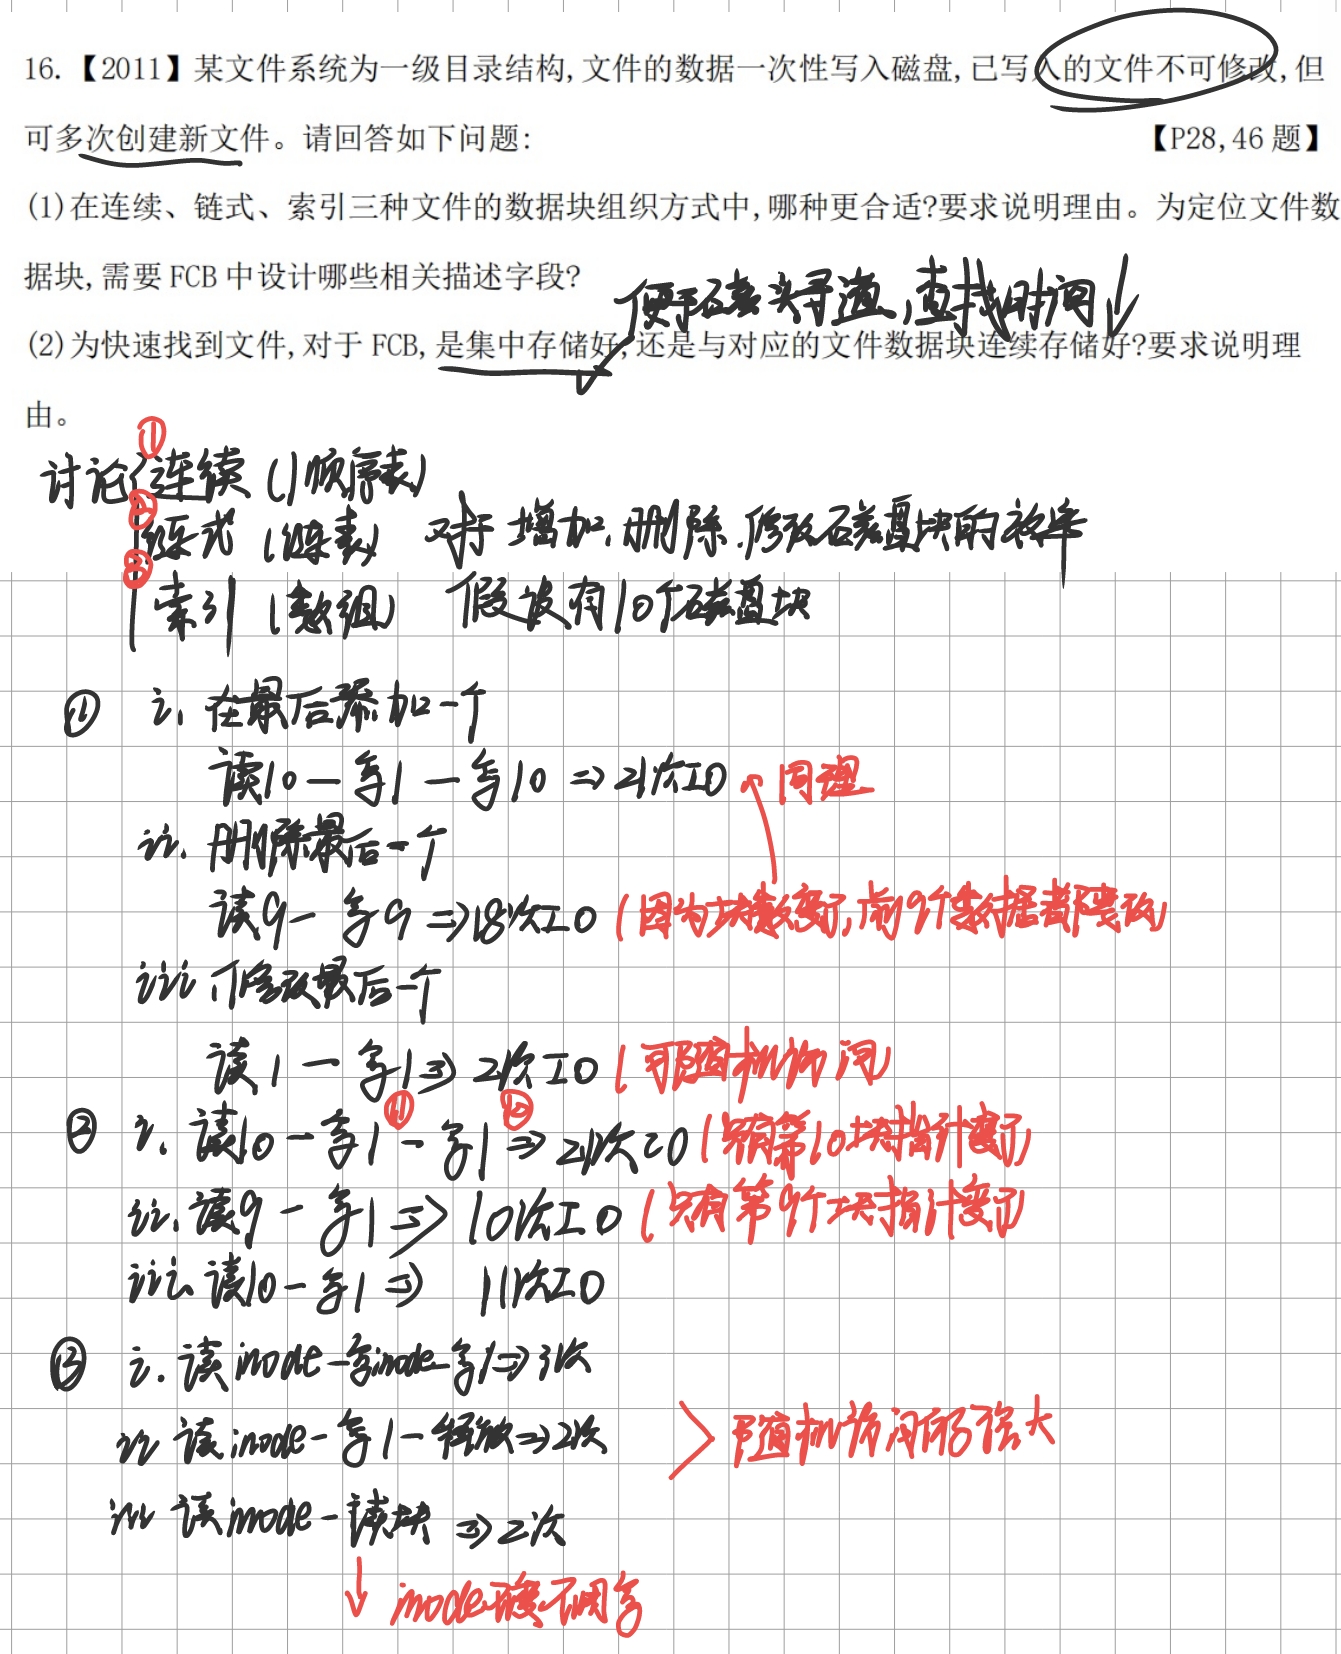 16.【2011】某文件系统为一级目录结构,文件的数据一次性写入磁盘,已写入的文件不可修改,但
可多次创建新文件。请回答如下问题: 【P28,46题】
(1)在连续、链式、索引三种文件的数据块组织方式中,哪种更合适?要求说明理由。为定位文件数
据块,需要FCB中设计哪些相关描述字段?
便于磁头寻道,查找时间↓
(2)为快速找到文件,对于FCB,是集中存储好,还是与对应的文件数据块连续存储好?要求说明理
由。
讨论 ①连续(顺序表)
②链式(链表) 对于增加,删除,修改磁盘块的效率
③索引(数组) 假设有10个磁盘块
① i. 在最后添加一个
读10—写1—写10⇒21次IO 同理
ii. 删除最后一个
读9—写9⇒18次IO(因为块数变了,前9个数据都要改)
iii 修改最后一个
读1—写1⇒2次IO(可随机访问)
② i. 读10—写1①—写1②⇒21次IO(只有第10块指针变了)
ii. 读9—写1⇒10次IO(只有第9个块指针变了)
iii. 读10—写1⇒ 11次IO
③ i. 读inode—写inode—写1⇒3次
ii 读inode—写1—释放⇒2次 随机访问的强大
iii 读inode—读块⇒2次
↓ inode不用写